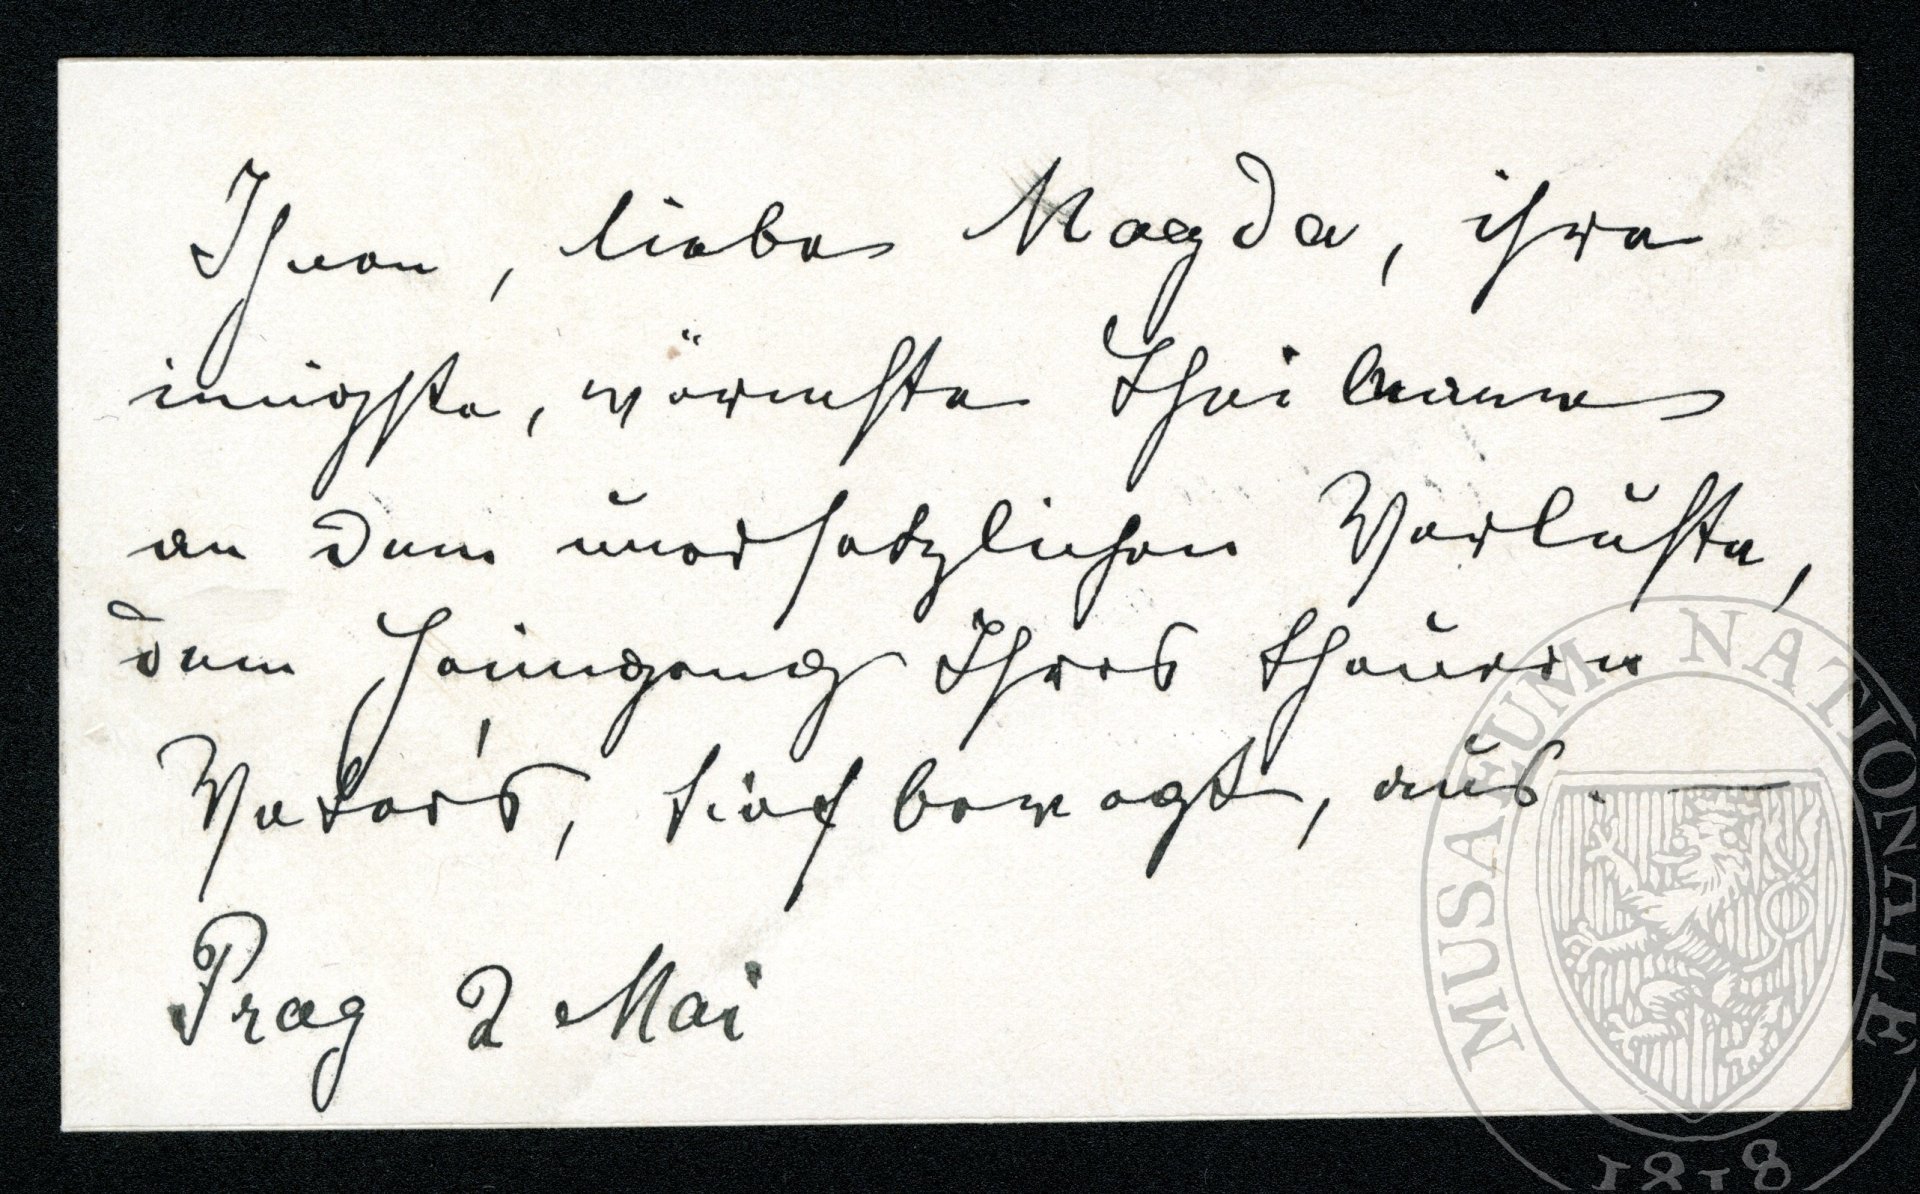 Ihnen, liebe Magda, ihre
innigste, wärmste Theilnahme
an dem unersetzlichen Verluste,
dem Heimgang Ihres theuern
Vaters, tief bewegt, aus. —
Prag 2 Mai
MUSAEUM NATIONALE
1818